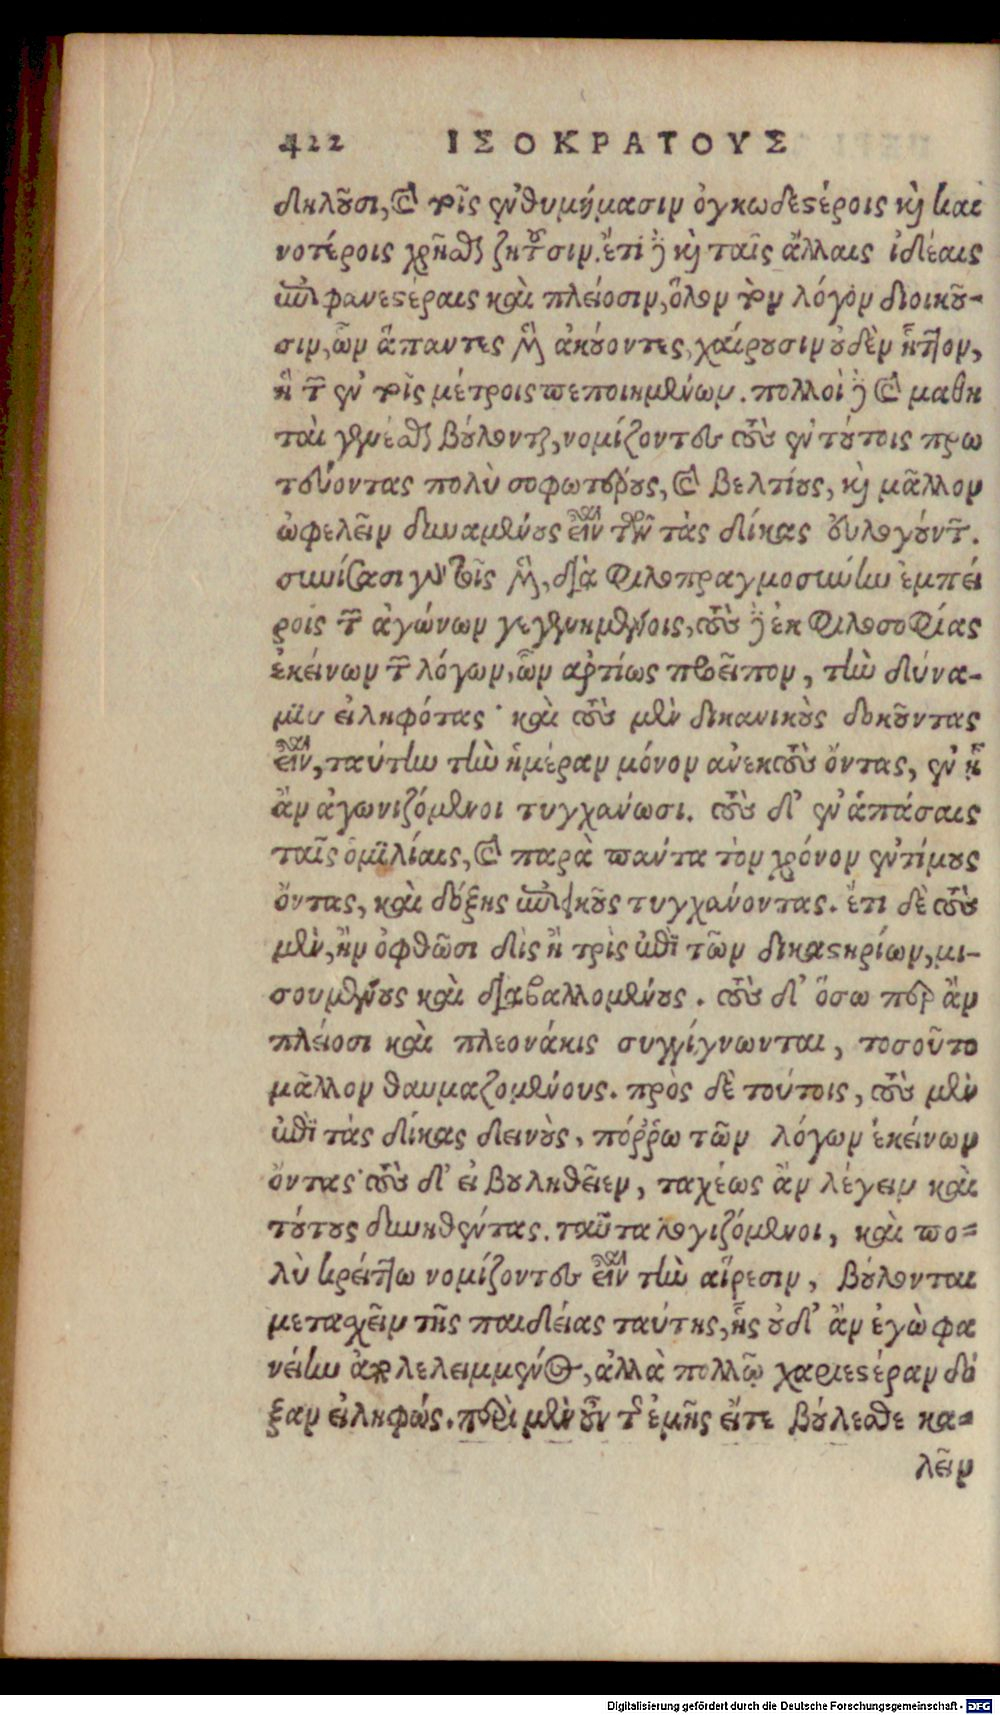 422 ΙΣΟΚΡΑΤΟΥΣ
δηλοῦσι, καὶ τοῖς ἐνθυμήμασιν ὀγκωδεστέροις καὶ και
νοτέροις χρῆσθαι ζητοῦσιν. ἔτι δὲ καὶ ταῖς ἄλλαις ἰδέαις
ἐπιφανεστέραις καὶ πλείοσιν, ὅλον τὸν λόγον διοικοῦ-
σιν, ὧν ἅπαντες μὲν ἀκούοντες, χαίρουσιν οὐδὲν ἧττον,
ἢ τῶν ἐν τοῖς μέτροις πεποιημένων. πολλοὶ δὲ καὶ μαθη
ταὶ γενέσθαι βούλονται, νομίζοντες τοὺς ἐν τούτοις πρω
τεύοντας πολὺ σοφωτέρους, καὶ βελτίους, καὶ μᾶλλον
ὠφελεῖν δυναμένους εἶναι τῶν τὰς δίκας εὖ λεγόντων.
συνίσασι γὰρ τοῖς μὲν, διὰ φιλοπραγμοσύνην ἐμπεί
ροις τῶν ἀγώνων γεγενημένοις, τοὺς δὲ ἐκ φιλοσοφίας
ἐκείνων τῶν λόγων, ὧν ἀρτίως προεῖπον, τὴν δύνα-
μιν εἰληφότας· καὶ τοὺς μὲν δικανικοὺς δοκοῦντας
εἶναι, ταύτην τὴν ἡμέραν μόνον ἀνεκτοὺς ὄντας, ἐν ᾗ
ἂν ἀγωνιζόμενοι τυγχάνωσι. τοὺς δ' ἐν ἁπάσαις
ταῖς ὁμιλίαις, καὶ παρὰ πάντα τὸν χρόνον ἐντίμους
ὄντας, καὶ δόξης ἐπιεικοῦς τυγχάνοντας. ἔτι δὲ τοὺς
μὲν, ἢν ὀφθῶσι δὶς ἢ τρὶς ἐπὶ τῶν δικαστηρίων, μι-
σουμένους καὶ διαβαλλομένους. τοὺς δ' ὅσω περ ἂν
πλείοσι καὶ πλεονάκις συγγίγνωνται, τοσοῦτο
μᾶλλον θαυμαζομένους. πρὸς δὲ τούτοις, τοὺς μὲν
ἐπὶ τὰς δίκας δεινοὺς, πόῤῥω τῶν λόγων ἐκείνων
ὄντας· τοὺς δ' εἰ βουληθεῖεν, ταχέως ἂν λέγειν καὶ
τούτους δυνηθέντας. ταῦτα λογιζόμενοι, καὶ πο-
λὺ κρείττω νομίζοντες εἶναι τὴν αἵρεσιν, βούλονται
μετασχεῖν τῆς παιδείας ταύτης, ἧς οὐδ' ἂν ἐγὼ φα
νείην ἀπολελειμμένος, ἀλλὰ πολλῷ χαριεστέραν δό
ξαν εἰληφώς. περὶ μὲν οὖν τῆς ἐμῆς εἴτε βούλεσθε κα-
λεῖν
Digitalisierung gefördert durch die Deutsche Forschungsgemeinschaft - DFG